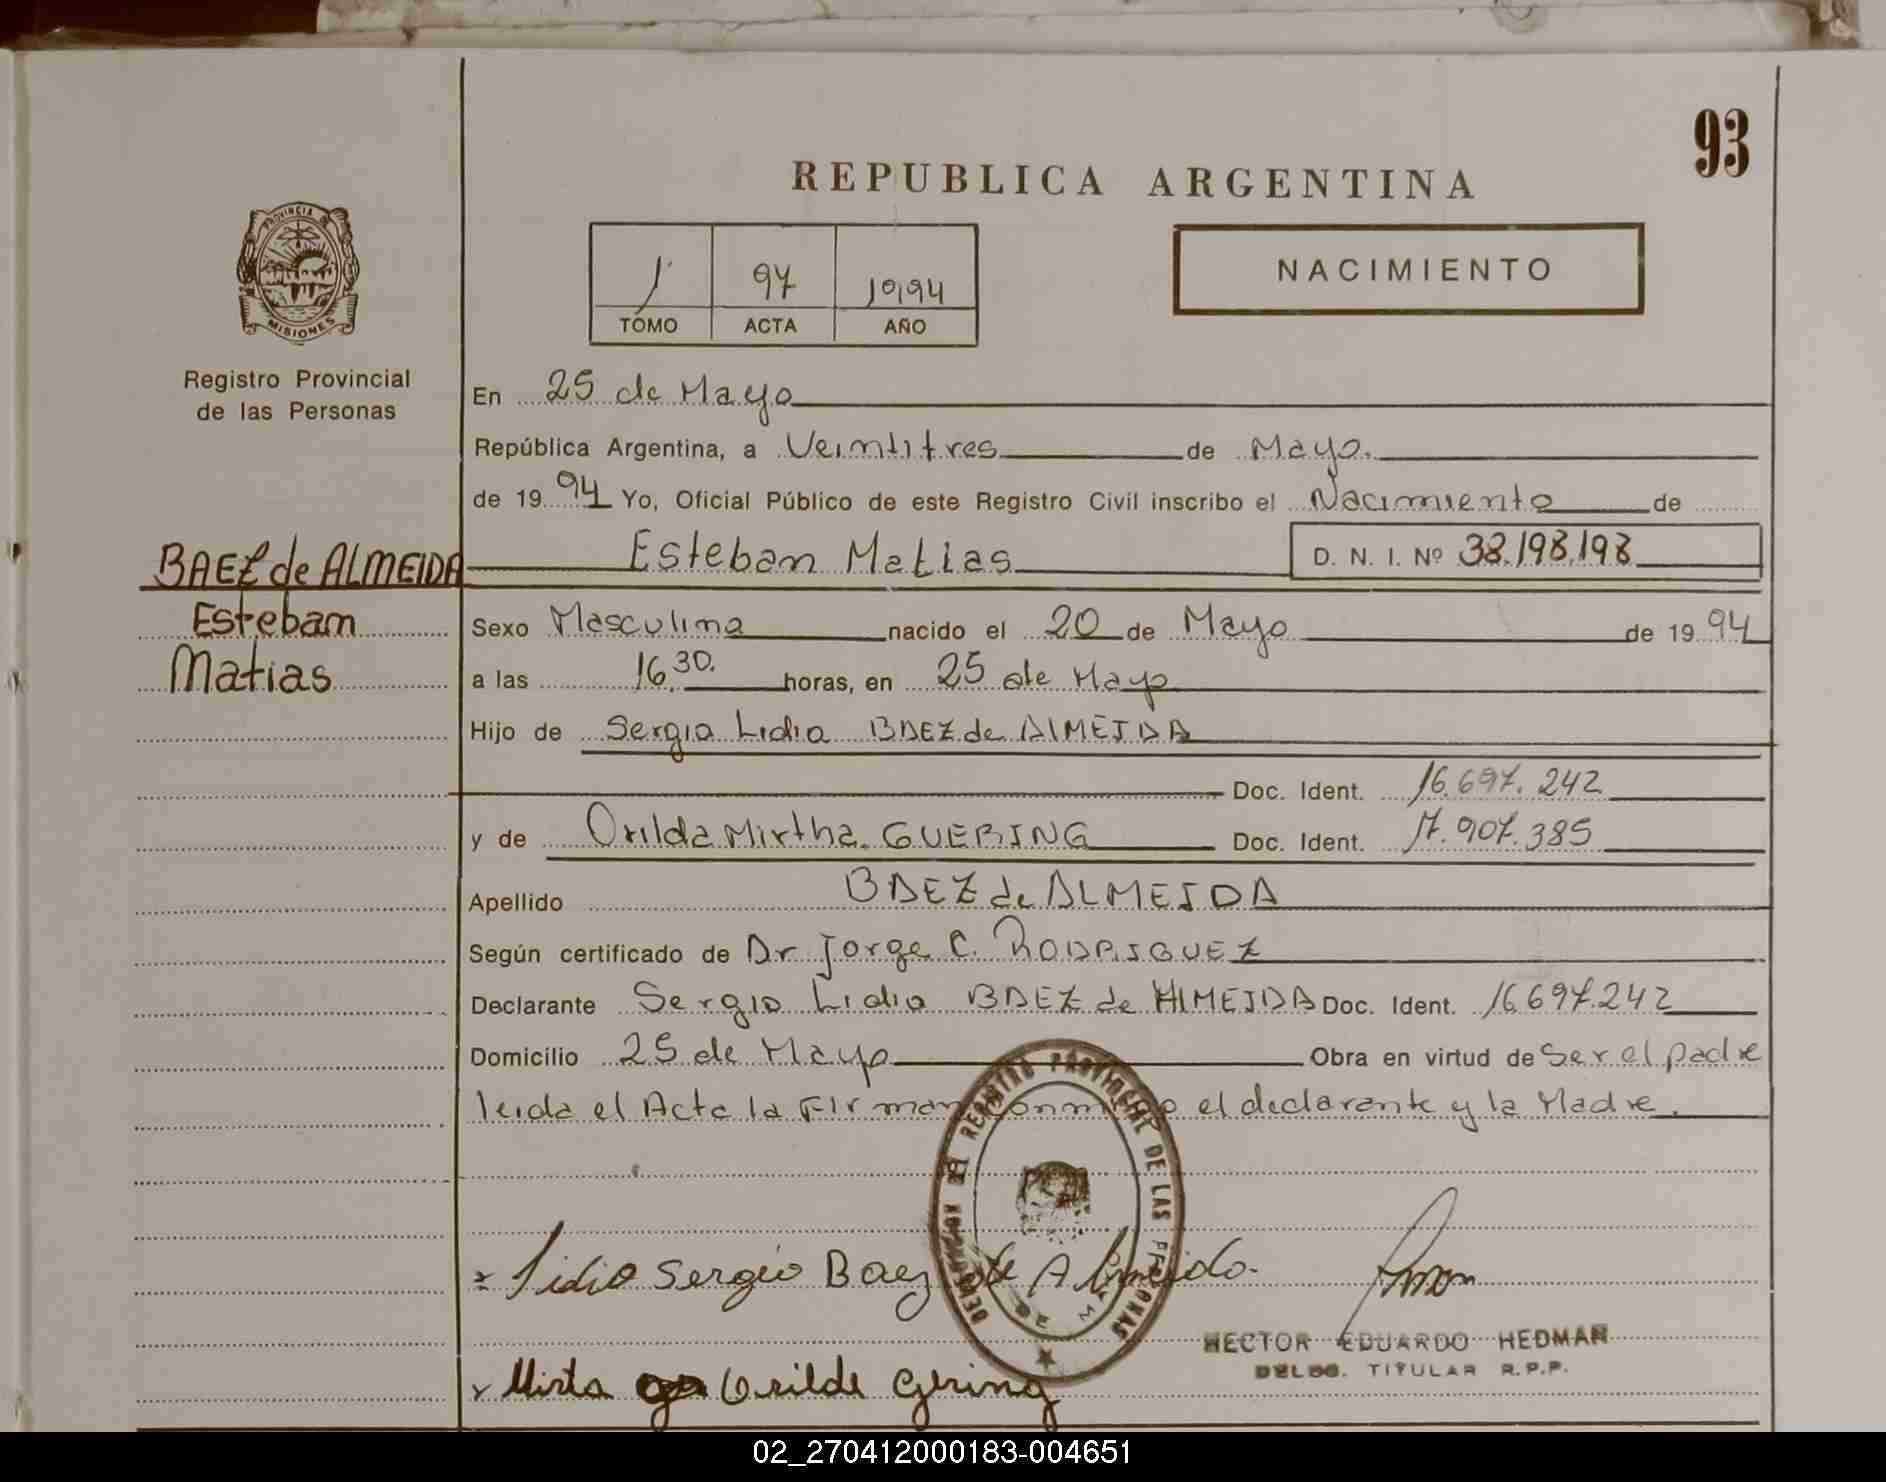 93
REPUBLICA ARGENTINA
PROVINCIA DE
MISIONES
1 97 1994
TOMO ACTA AÑO
NACIMIENTO
Registro Provincial
de las Personas
En 25 de Mayo
República Argentina, a Veintitres de Mayo.
de 19 94 Yo, Oficial Público de este Registro Civil inscribo el Nacimiento de
BAEZ de ALMEIDA
Estebam
Matias
Esteban Matias D. N. I. Nº 38.198.198
Sexo Masculino nacido el 20 de Mayo de 19 94
a las 16.30. horas, en 25 de Mayo
Hijo de Sergio Lidio BAEZ de AlMEIDA
Doc. Ident. 16.697.242
y de Orilda Mirtha GUERING Doc. Ident. 17.907.385
Apellido BAEZ de ALMEIDA
Según certificado de Dr Jorge C. RODRIGUEZ
Declarante Sergio Lidio BAEZ de AlMEIDA Doc. Ident. 16.697.242
Domicilio 25 de Mayo Obra en virtud de Ser el padre
leida el Acta la Firman conmigo el declarante y la Madre.
DELEGACION DEL REGISTRO PROVINCIAL DE LAS PERSONAS
Lidio Sergio Baez de Almeida.
HECTOR EDUARDO HEDMAN
DELEG. TITULAR R.P.P.
Mirta Orilde Gering
02_270412000183-004651